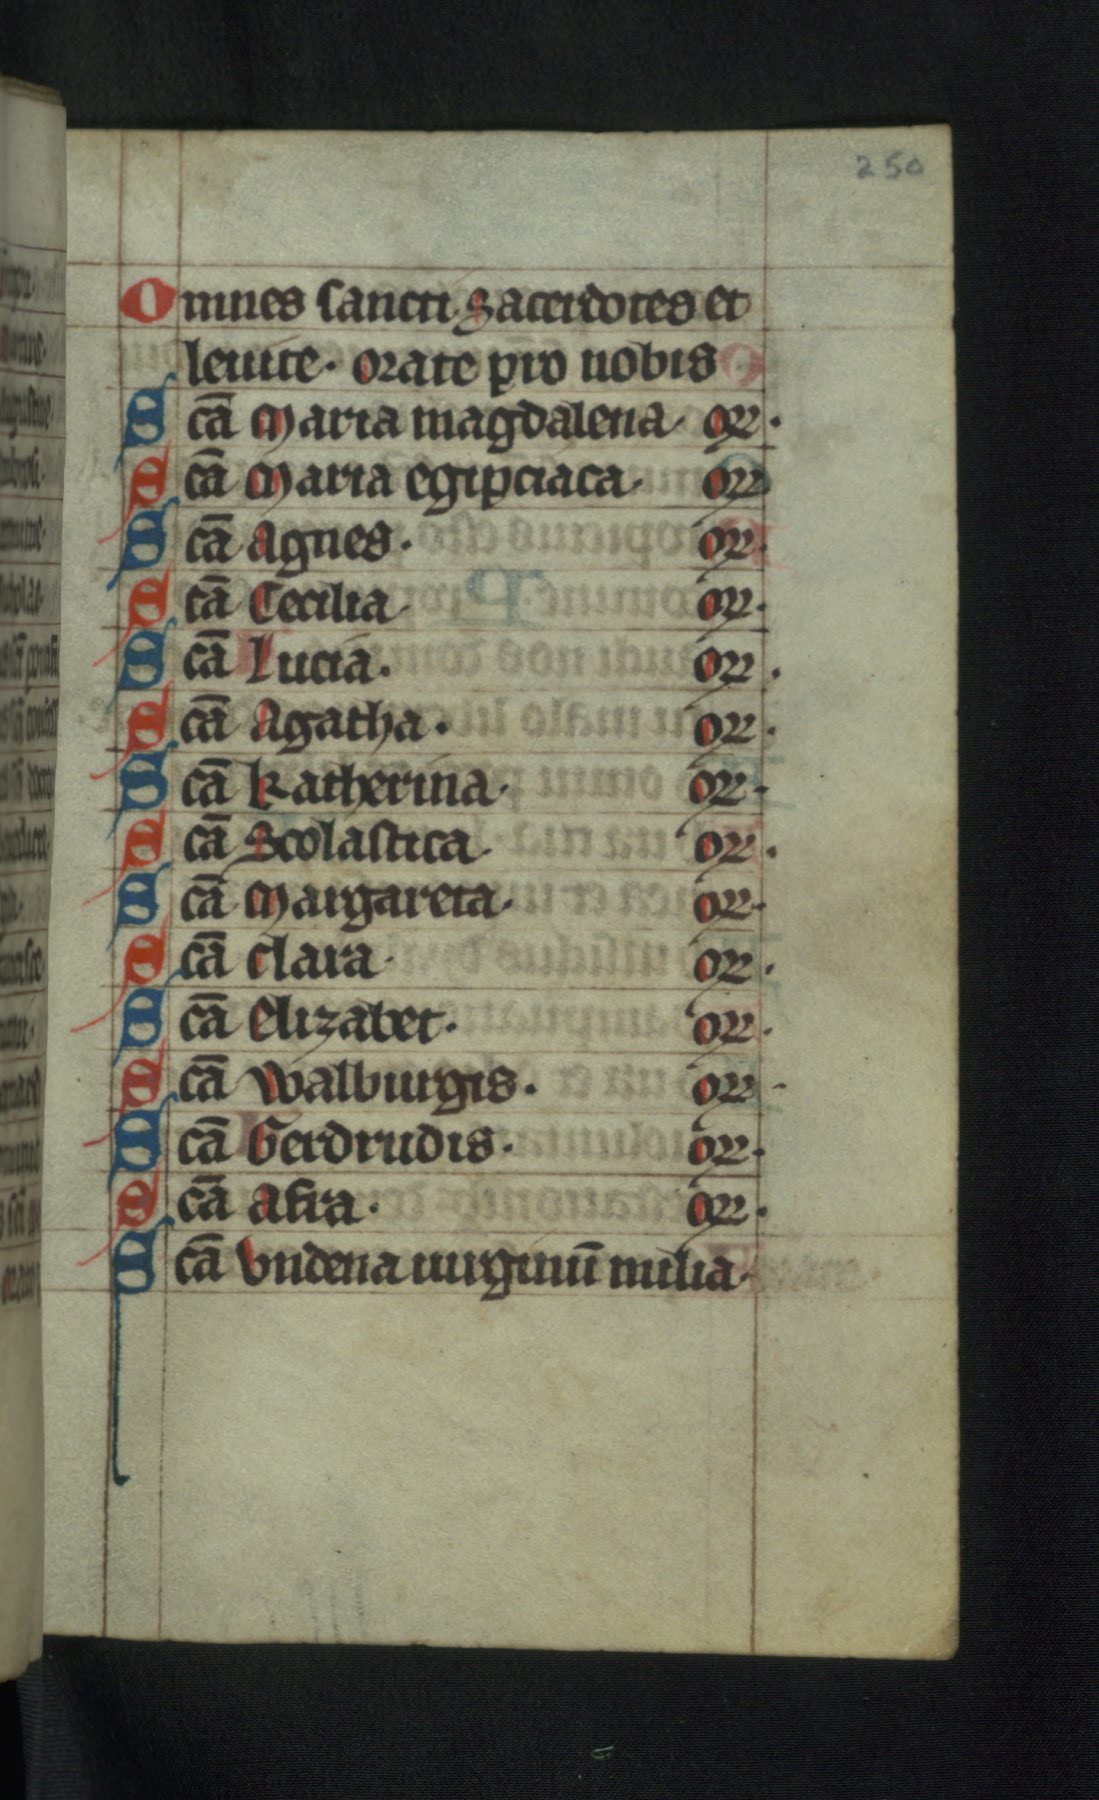 250
Omnes sancti sacerdotes et
leuite. orate pro nobis
Scā Maria magdalena. or.
Scā Maria egipciaca. or
Scā Agnes. or.
Scā Cecilia. or.
Scā Lucia. or.
Scā Agatha. or.
Scā Katherina. or.
Scā Scolastica. or.
Scā Margareta. or.
Scā clara. or.
Scā Elizabet. or.
Scā Walburgis. or.
Scā Gerdrudis. or.
Scā Afra. or.
Scā Vndena uirginū milia.